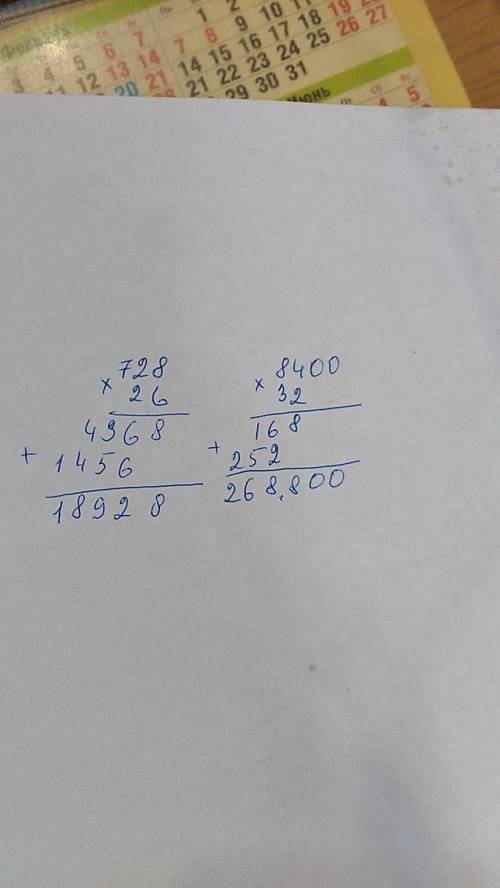 Февраль
Сб Вс
Пн
1 2
3 4 5 6 7
7 8 9 10 11
11 12 13 14
14 15 16 17 18 19 20
20 21
21 22 23 24 25 26 27
28
29 30 31
Июнь
Пт Сб Вс
4 5
× 728
26
4368
+ 1456
18928
× 8400
32
168
+ 252
268.800